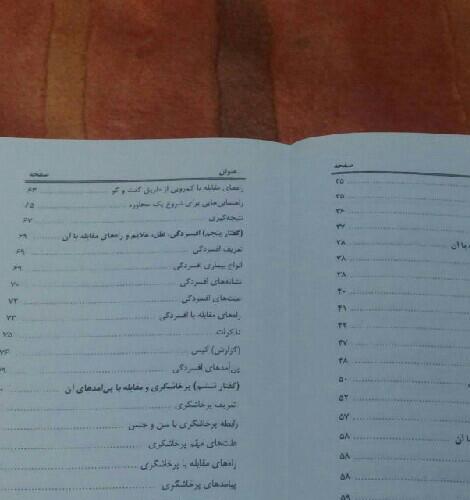 صفحه
۲۵
۲۵
۳۶
۳۷
۳۸
۳۸
۳۸
۴۰
۴۱
۴۴
۴۷
۴۸
۵۰
۵۲
۵۷
۵۸
۵۸
۵۸
۵۹
عنوان صفحه
راه‌های مقابله با کم‌رویی از طریق گفت و گو ۶۳
راهنمایی‌هایی برای شروع یک محاوره ۶۵
نتیجه‌گیری ۶۷
(گفتار پنجم) افسردگی، علل، علایم و راه‌های مقابله با آن ۶۹
تعریف افسردگی ۶۹
انواع بیماری افسردگی ۶۹
نشانه‌های افسردگی ۷۰
علت‌های افسردگی ۷۲
راه‌های مقابله با افسردگی ۷۳
تذکرات ۷۵
(گزارش) کیس ۷۶
پی‌آمدهای افسردگی
(گفتار ششم) پرخاشگری و مقابله با پی‌آمدهای آن
تعریف پرخاشگری
رابطه پرخاشگری با سن و جنس
علت‌های مهم پرخاشگری
راه‌های مقابله با پرخاشگری
پیامدهای پرخاشگری